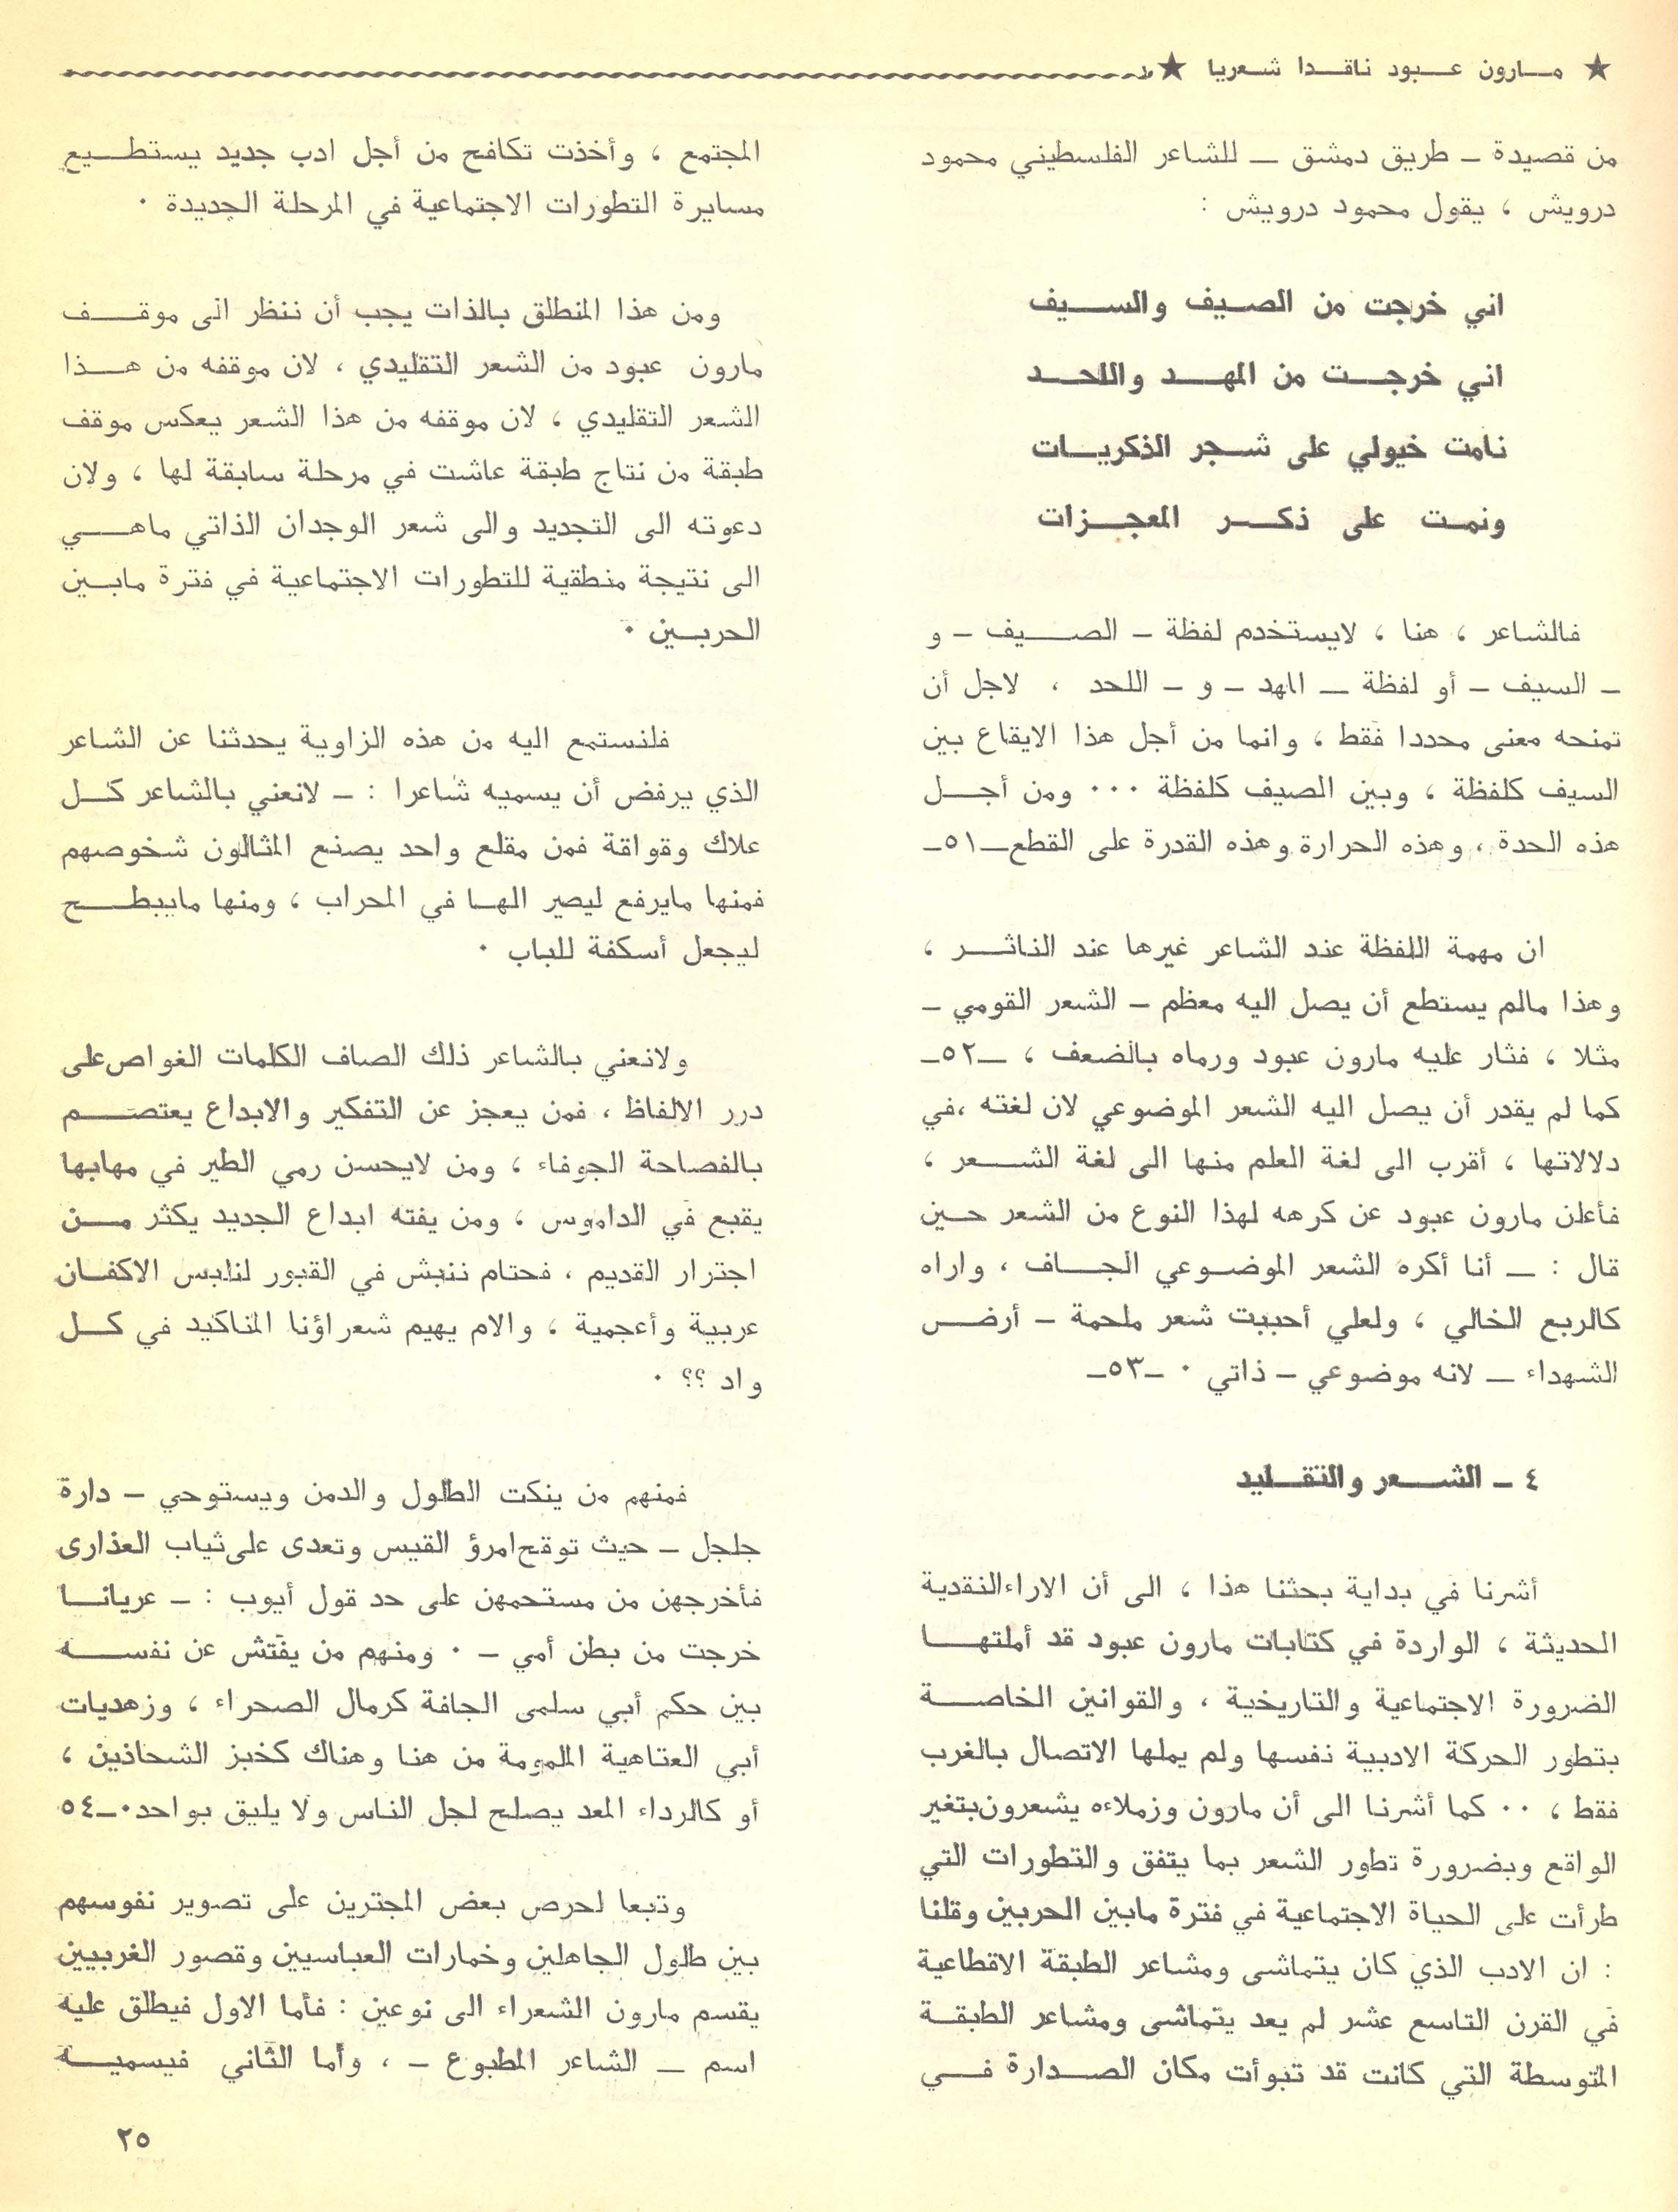 ★ مارون عبود ناقدا شعريا ★
من قصيدة – طريق دمشق – للشاعر الفلسطيني محمود
درويش ، يقول محمود درويش :
اني خرجت من الصيف والسيف
اني خرجت من المهد واللحد
نامت خيولي على شجر الذكريات
ونمت على ذكر المعجزات
فالشاعر ، هنا ، لايستخدم لفظة – الصيف – و
– السيف – أو لفظة – المهد – و – اللحد ، لاجل أن
تمنحه معنى محددا فقط ، وانما من أجل هذا الايقاع بين
السيف كلفظة ، وبين الصيف كلفظة ٠٠٠ ومن أجل
هذه الحدة ، وهذه الحرارة وهذه القدرة على القطع–٥١–
ان مهمة اللفظة عند الشاعر غيرها عند الناثر ،
وهذا مالم يستطع أن يصل اليه معظم – الشعر القومي –
مثلا ، فثار عليه مارون عبود ورماه بالضعف ، –٥٢–
كما لم يقدر أن يصل اليه الشعر الموضوعي لان لغته ،في
دلالاتها ، أقرب الى لغة العلم منها الى لغة الشعر ،
فأعلن مارون عبود عن كرهه لهذا النوع من الشعر حين
قال : – أنا أكره الشعر الموضوعي الجاف ، واراه
كالربع الخالي ، ولعلي أحببت شعر ملحمة – أرض
الشهداء – لانه موضوعي – ذاتي ٠ –٥٣–
٤ – الشعر والتقليد
أشرنا في بداية بحثنا هذا ، الى أن الاراءالنقدية
الحديثة ، الواردة في كتابات مارون عبود قد أملتها
الضرورة الاجتماعية والتاريخية ، والقوانين الخاصة
بتطور الحركة الادبية نفسها ولم يملها الاتصال بالغرب
فقط ، ٠٠ كما أشرنا الى أن مارون وزملاءه يشعرون بتغير
الواقع وبضرورة تطور الشعر بما يتفق والتطورات التي
طرأت على الحياة الاجتماعية في فترة مابين الحربين وقلنا
: ان الادب الذي كان يتماشى ومشاعر الطبقة الاقطاعية
في القرن التاسع عشر لم يعد يتماشى ومشاعر الطبقة
المتوسطة التي كانت قد تبوأت مكان الصدارة في
المجتمع ، وأخذت تكافح من أجل ادب جديد يستطيع
مسايرة التطورات الاجتماعية في المرحلة الجديدة ٠
ومن هذا المنطلق بالذات يجب أن ننظر الى موقف
مارون عبود من الشعر التقليدي ، لان موقفه من هذا
الشعر التقليدي ، لان موقفه من هذا الشعر يعكس موقف
طبقة من نتاج طبقة عاشت في مرحلة سابقة لها ، ولان
دعوته الى التجديد والى شعر الوجدان الذاتي ماهي
الى نتيجة منطقية للتطورات الاجتماعية في فترة مابين
الحربين ٠
فلنستمع اليه من هذه الزاوية يحدثنا عن الشاعر
الذي يرفض أن يسميه شاعرا : – لانعني بالشاعر كل
علاك وقواقة فمن مقلع واحد يصنع المثالون شخوصهم
فمنها مايرفع ليصير الها في المحراب ، ومنها مايبطح
ليجعل أسكفة للباب ٠
ولانعني بالشاعر ذلك الصاف الكلمات الغواص على
درر الالفاظ ، فمن يعجز عن التفكير والابداع يعتصم
بالفصاحة الجوفاء ، ومن لايحسن رمي الطير في مهابها
يقبع في الداموس ، ومن يفته ابداع الجديد يكثر من
اجترار القديم ، فحتام ننبش في القبور لنلبس الاكفان
عربية وأعجمية ، والام يهيم شعراؤنا المناكيد في كل
واد ؟؟ ٠
فمنهم من ينكت الطلول والدمن ويستوحي – دارة
جلجل – حيث توقح امرؤ القيس وتعدى على ثياب العذارى
فأخرجهن من مستحمهن على حد قول أيوب : – عريانا
خرجت من بطن أمي – ٠ ومنهم من يفتش عن نفسه
بين حكم أبي سلمى الجافة كرمال الصحراء ، وزهديات
أبي العتاهية الملمومة من هنا وهناك كخبز الشحاذين ،
أو كالرداء المعد يصلح لجل الناس ولا يليق بواحد٠–٥٤
وتبعا لحرص بعض المجترين على تصوير نفوسهم
بين طلول الجاهلين وخمارات العباسيين وقصور الغربيين
يقسم مارون الشعراء الى نوعين : فأما الاول فيطلق عليه
اسم – الشاعر المطبوع – ، وأما الثاني فيسميه
٢٥